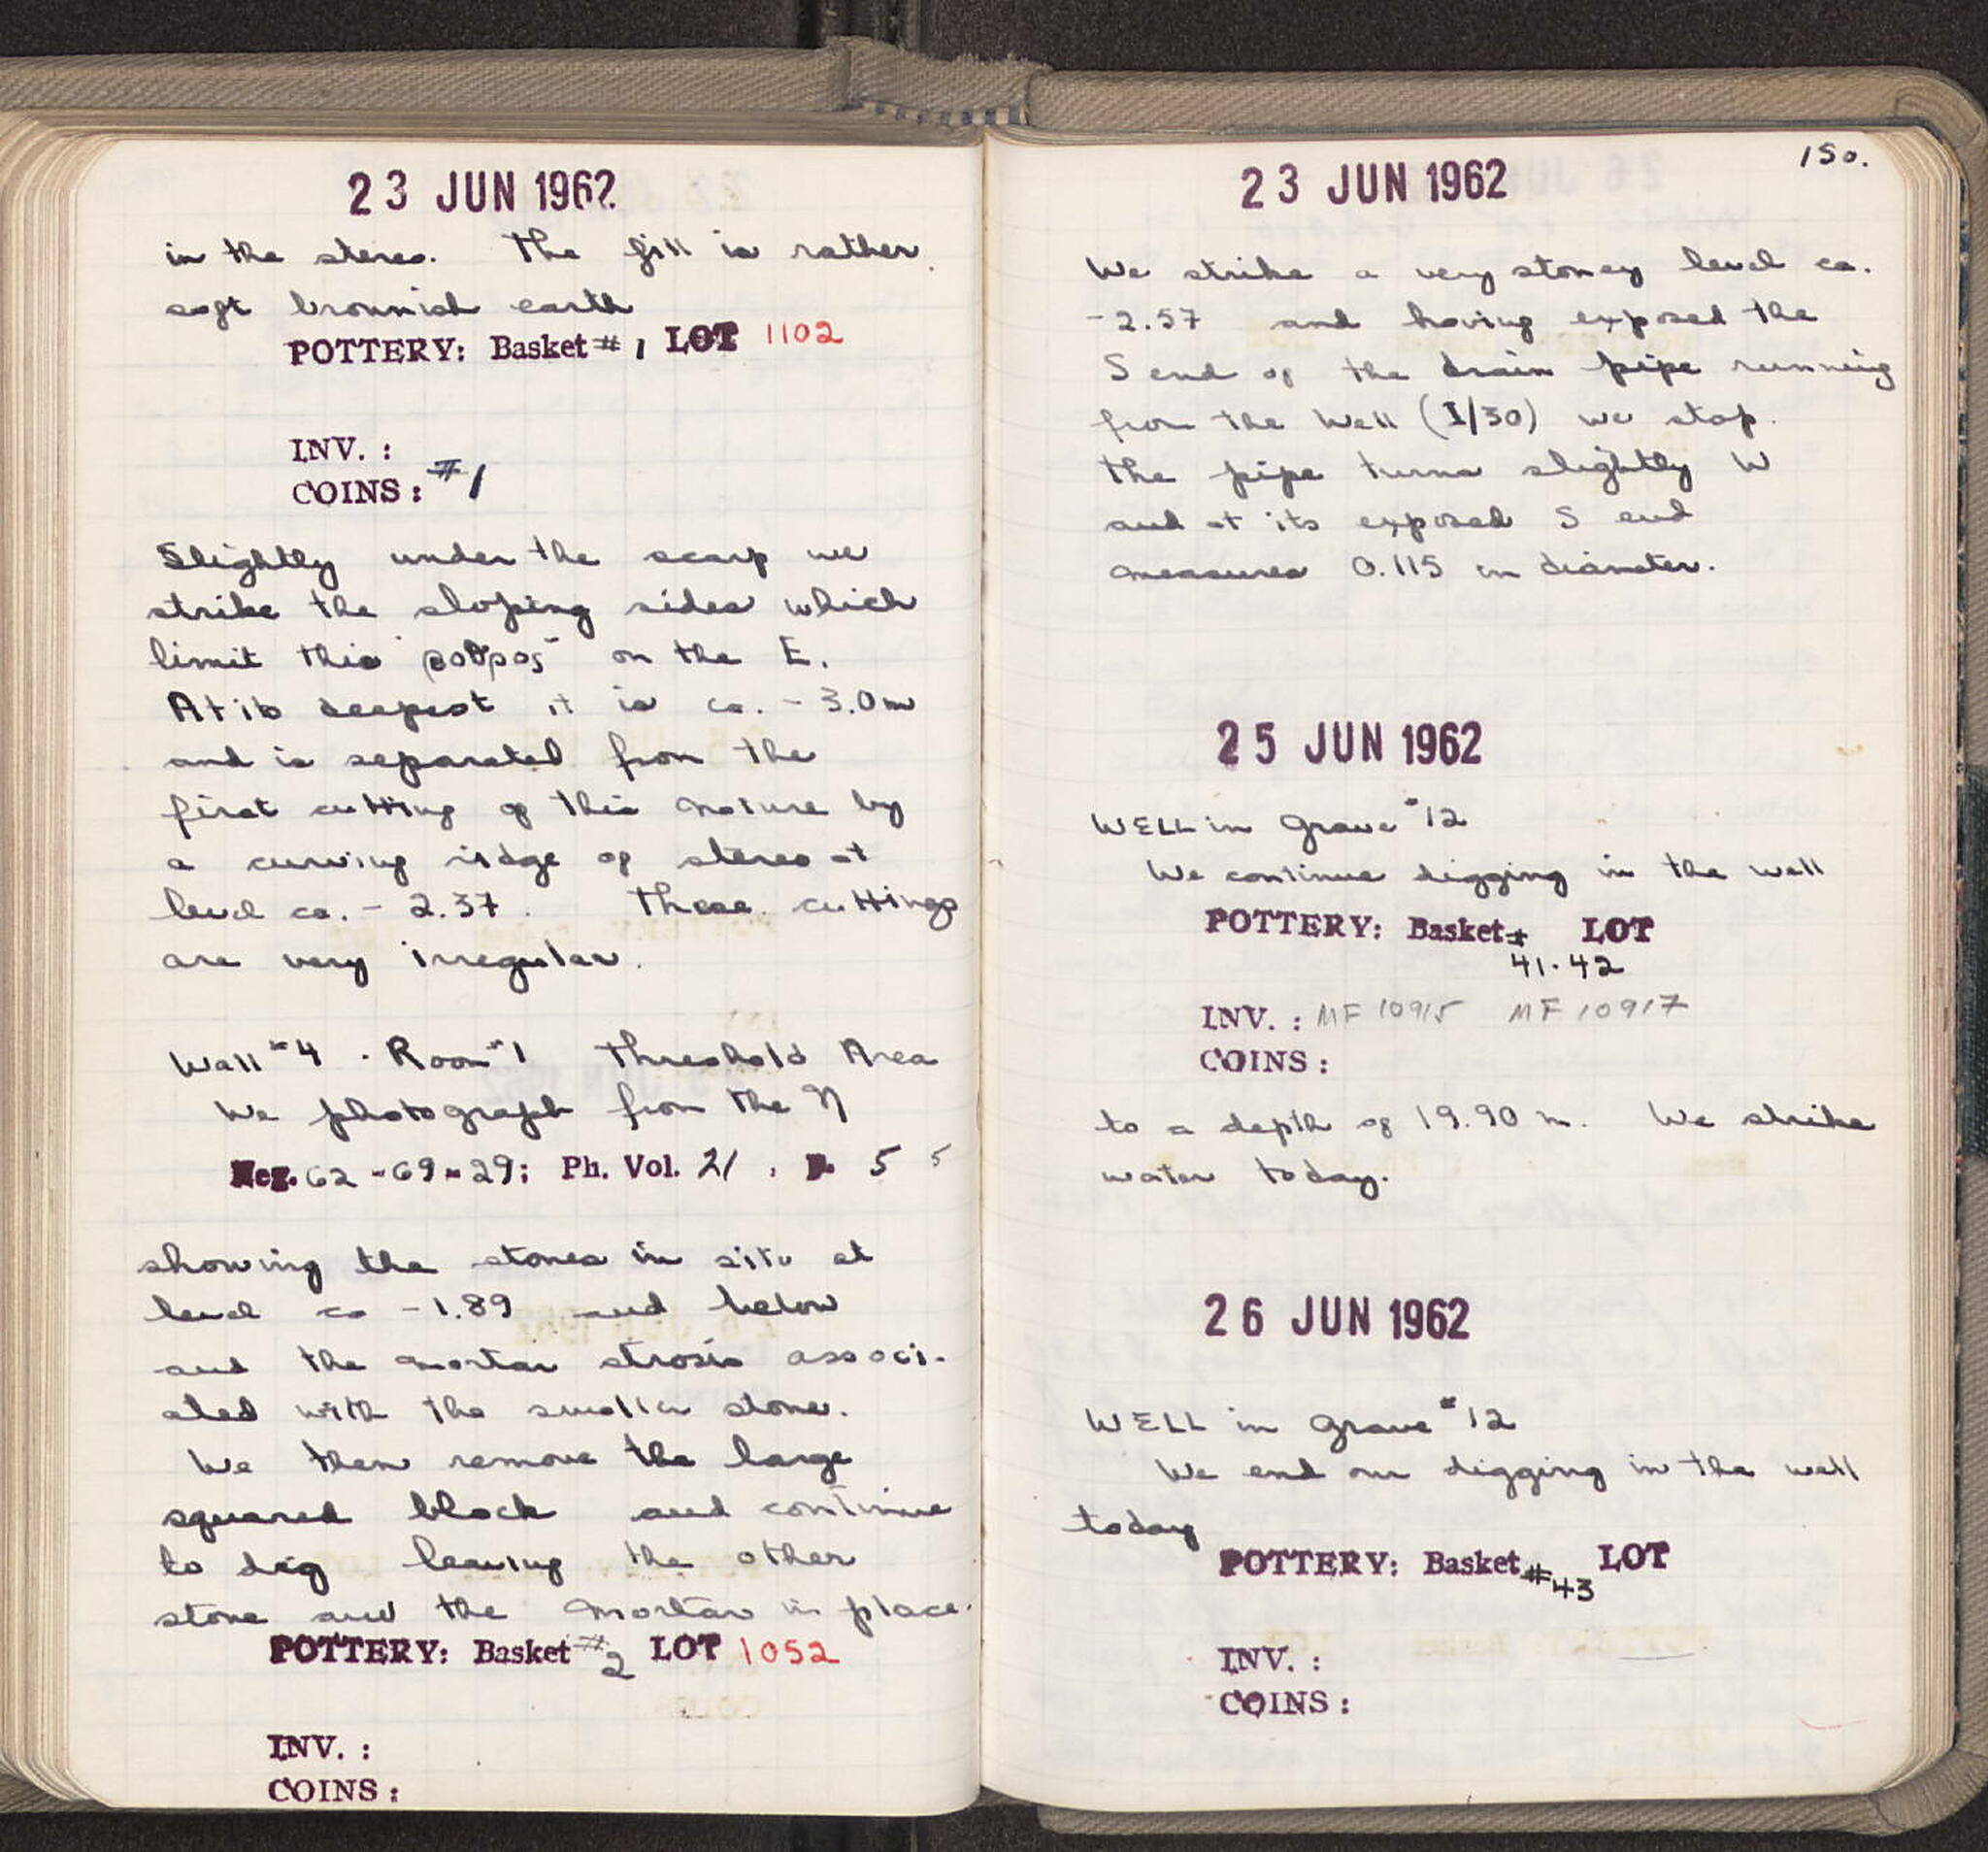 23 JUN 1962
in the stereo. The fill is rather
soft brownish earth
POTTERY: Basket # 1 LOT 1102
INV. :
COINS : #1
Slightly under the scarp we
strike the sloping sides which
limit this "βόθρος" on the E.
At its deepest it is ca. - 3.0m
and is separated from the
first cutting of this nature by
a curving ridge of stereo at
level ca. - 2.37. These cuttings
are very irregular.
Wall #4 . Room #1 Threshold Area
We photograph from the N
Neg. 62 - 69 - 29; Ph. Vol. 21 , p. 5 5
showing the stones in situ at
level ca -1.89 and below
and the mortar strosis associ-
ated with the smaller stone.
We then remove the large
squared block and continue
to dig leaving the other
stone and the mortar in place.
POTTERY: Basket #2 LOT 1052
INV. :
COINS :
150.
23 JUN 1962
We strike a very stoney level ca.
-2.57 and having exposed the
S end of the drain pipe running
from the Well (I/30) we stop.
The pipe turns slightly W
and at its exposed S end
measures 0.115 in diameter.
25 JUN 1962
WELL in Grave #12
We continue digging in the well
POTTERY: Basket # LOT
41-42
INV. : MF 10915 MF 10917
COINS :
to a depth of 19.90 m. We strike
water today.
26 JUN 1962
WELL in Grave #12
We end our digging in the well
today
POTTERY: Basket #43 LOT
INV. :
COINS :